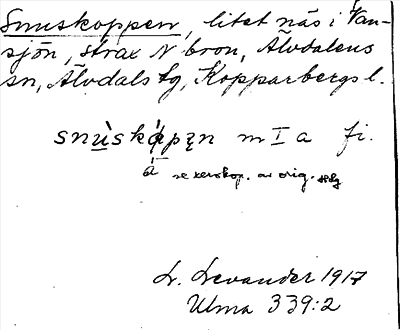 Snuskoppen, litet näs i Van-
sjön, strax N bron, Älvdalens
sn, Älvdals tg, Kopparbergs l.
snùskápęn m I a fi.
á se xeroxkop. av orig.
L. Levander 1917
Ulma 339:2